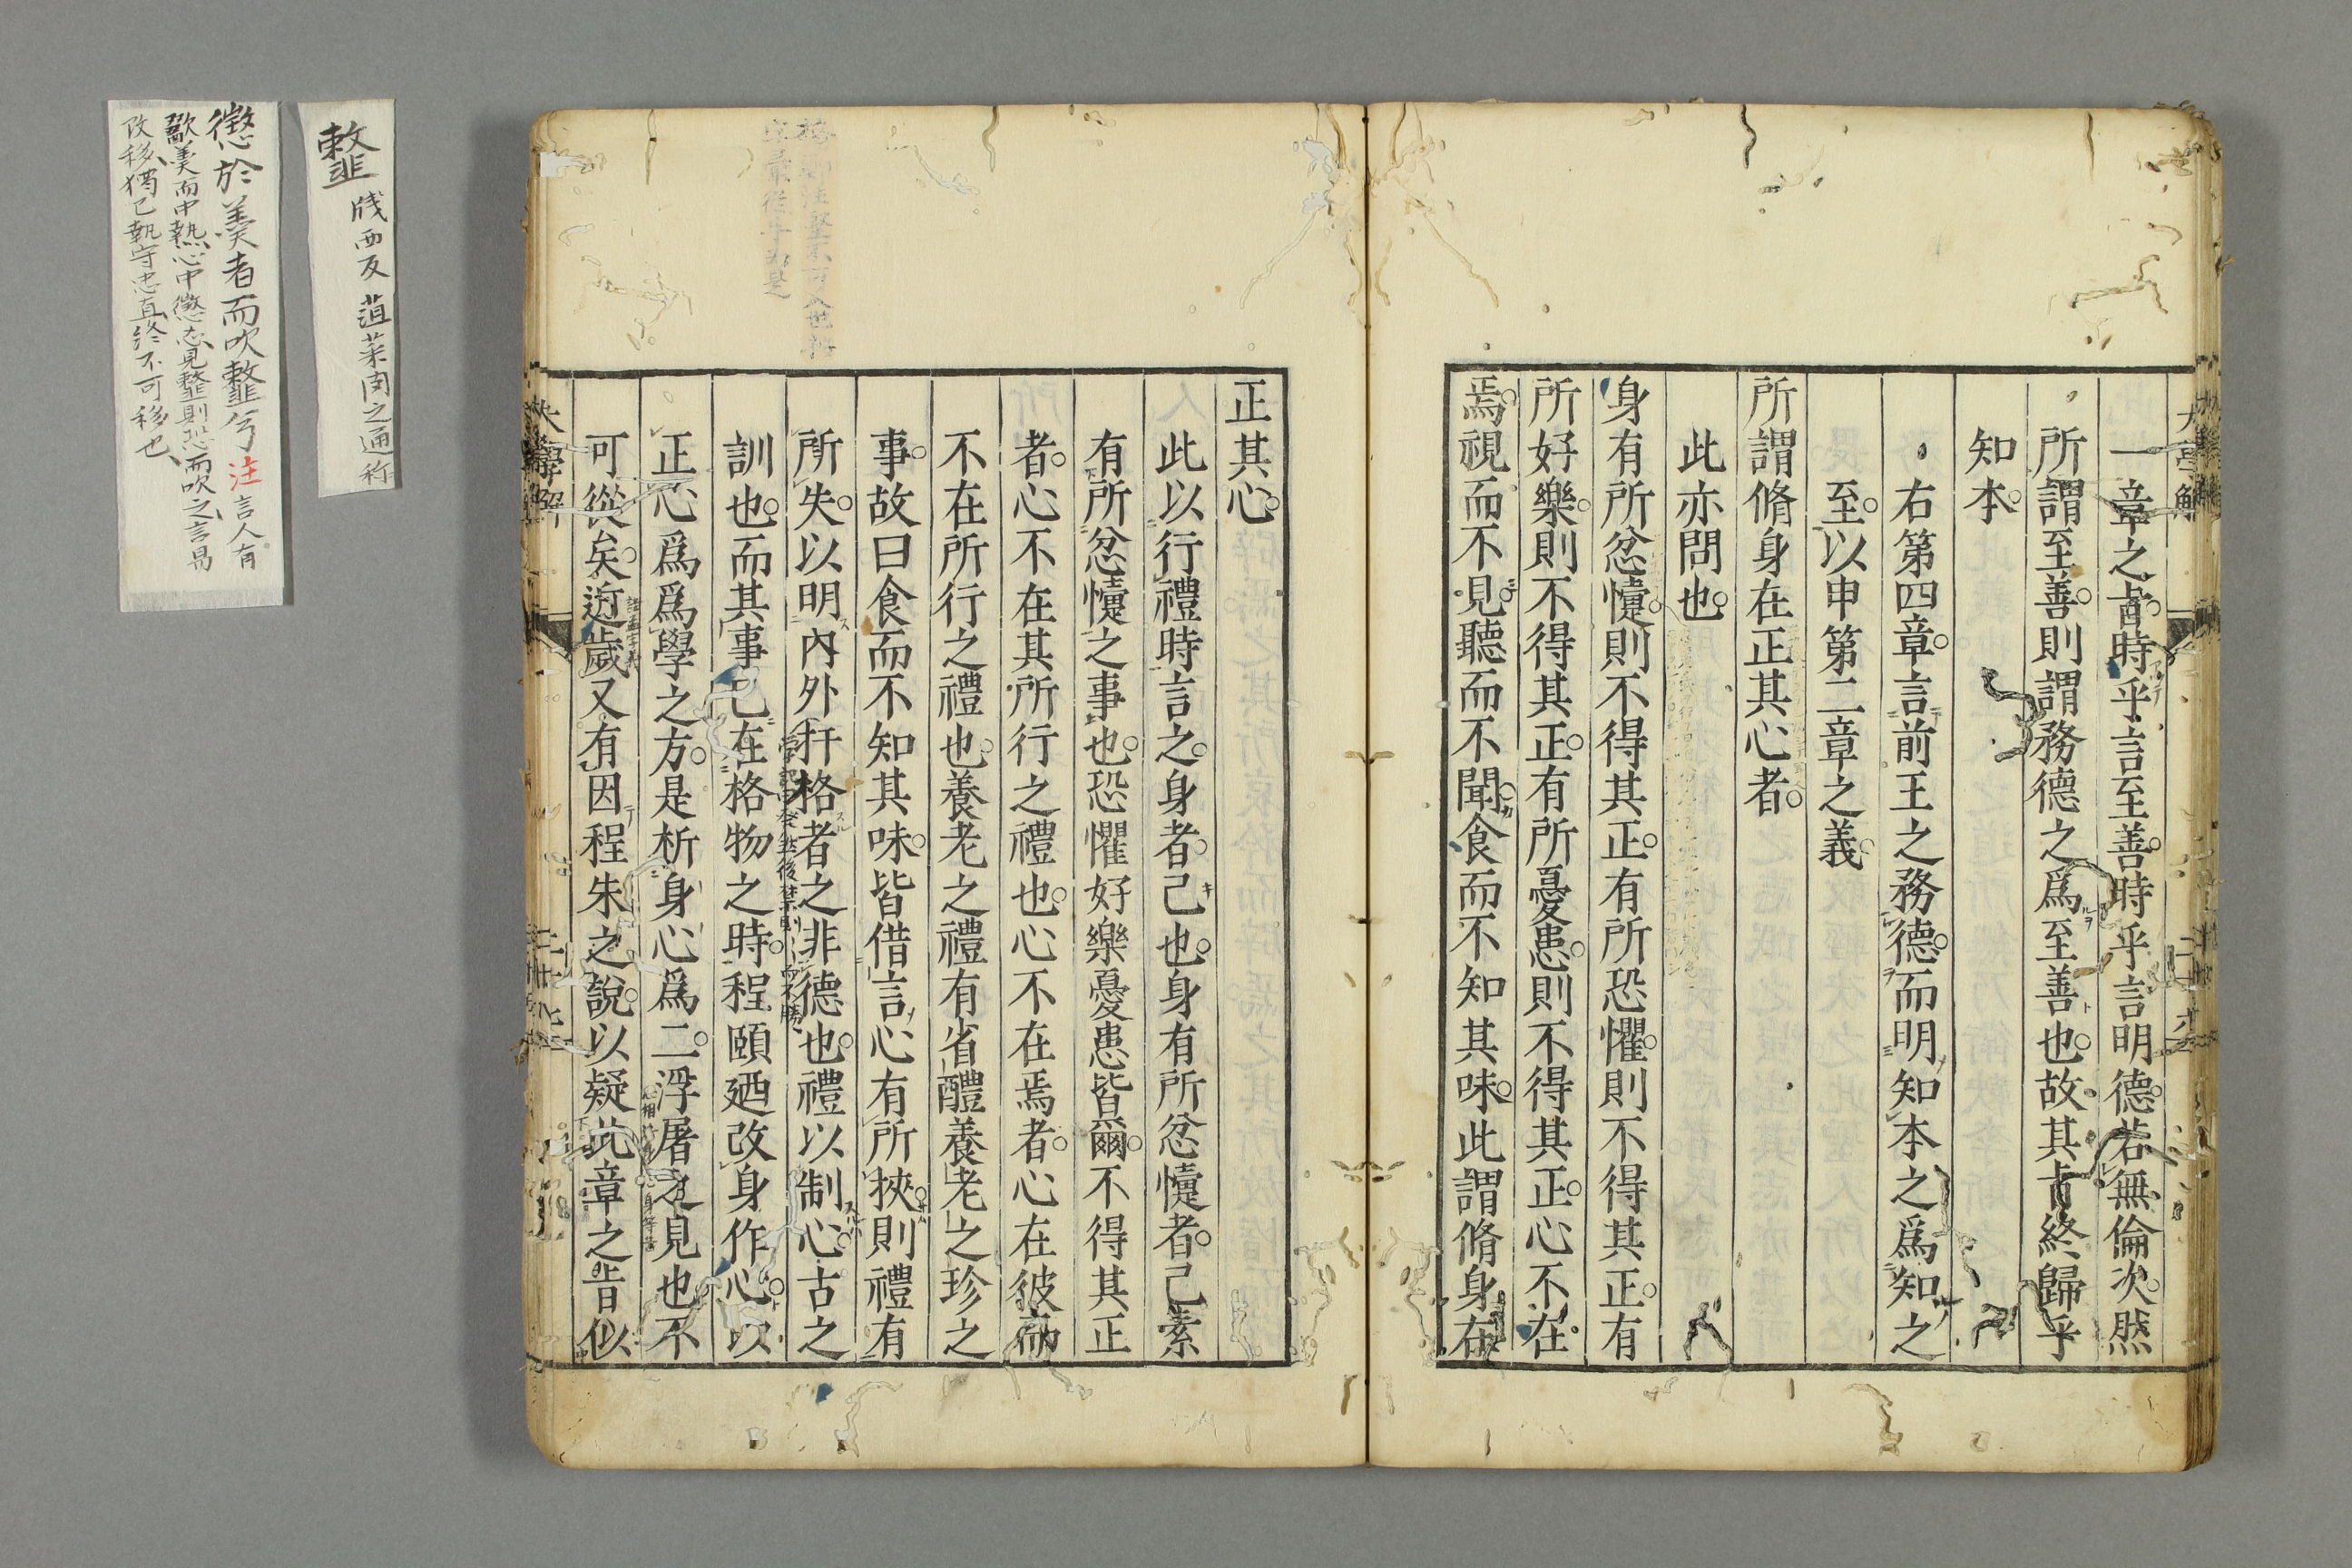 大學解
一章之旨時乎言至善時乎言明德若無倫次然
所謂至善則謂務德之爲至善也故其旨終歸乎
知本
右第四章言前王之務德而明知本之爲知之
至以申第二章之義
所謂脩身在正其心者
此亦問也
身有所忿懥則不得其正有所恐懼則不得其正有
所好樂則不得其正有所憂患則不得其正心不在
焉視而不見聽而不聞食而不知其味此謂脩身在
正其心
此以行禮時言之身者己也身有所忿懥者己素
有所忿懥之事也恐懼好樂憂患皆爾不得其正
者心不在其所行之禮也心不在焉者心在彼而
不在所行之禮也養老之禮有省醴養老之珍之
事故曰食而不知其味皆借言心有所挾則禮有
所失以明內外扞格者之非德也禮以制心古之
訓也而其事已在格物之時程頤廼改身作心以
正心爲爲學之方是析身心爲二浮屠之見也不
可從矣近歲又有因程朱之說以疑此章之旨似
大學解
䪢 牋西反 菹菜肉之通称
懲於羹者而吹䪢兮注言人有
歠羹而中熱心中懲忞見䪢則恐而吹之言易
改移獨己執守忠直終不可移也